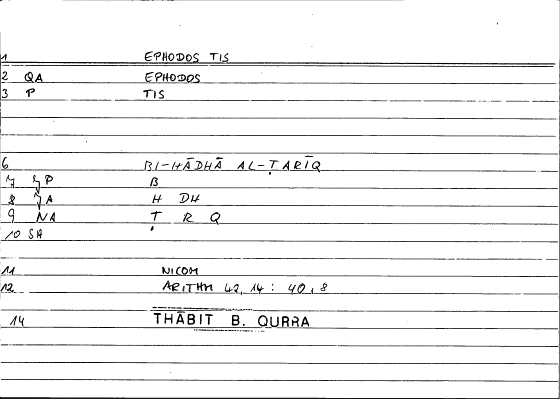 1 EPHODOS TIS
2 QA EPHODOS
3 P TIS
6 BI-HĀDHĀ AL-ṬARĪQ
7 P B
8 A H DH
9 NA Ṭ R Q
10 SA
11 NICOM
12 ARITHM 42, 14 : 40, 8
14 THĀBIT B. QURRA